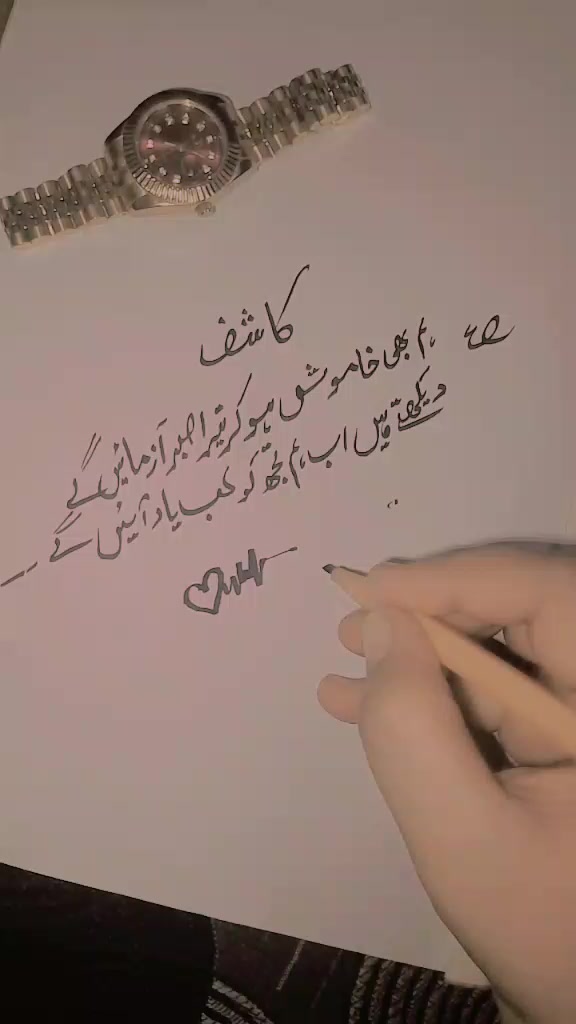 کاشف
ہم بھی خاموش ہو کر تیرا صبر آزمائیں گے
دیکھتے ہیں اب ہم تجھ کو کب یاد آئیں گے